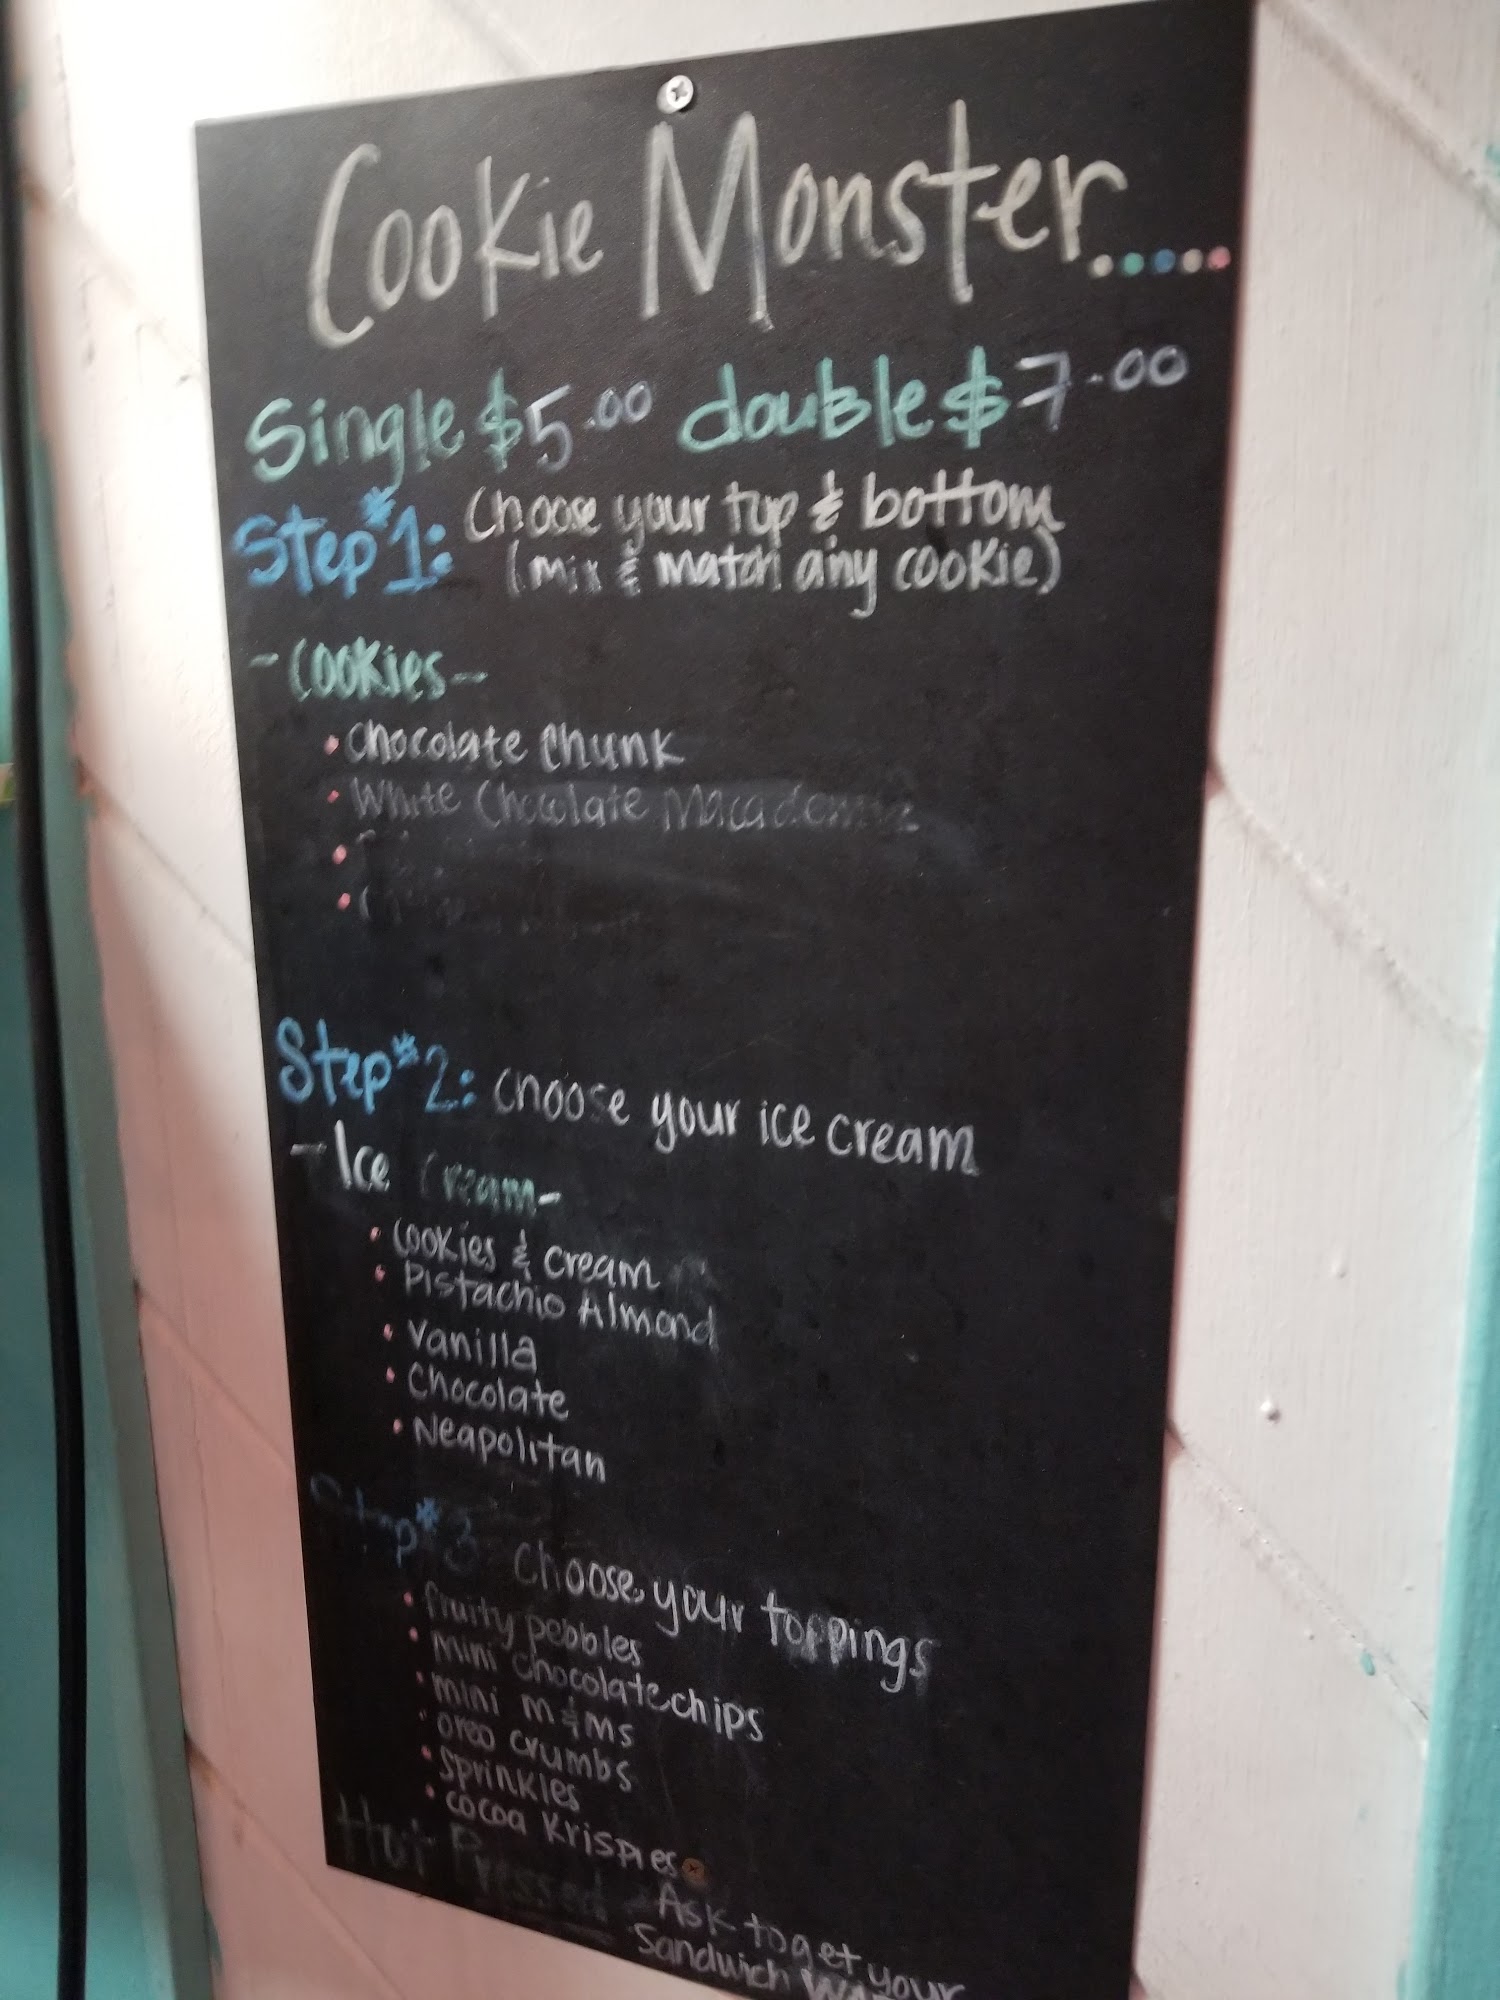 Cookie Monster.....
Single $5.00 double $7.00
Step #1: Choose your top & bottom
(mix & match any cookie)
- Cookies -
• Chocolate Chunk
• White Chocolate Macadamia
Step #2: Choose your ice cream
- Ice Cream -
• Cookies & Cream
• Pistachio Almond
• Vanilla
• Chocolate
• Neapolitan
Step #3 Choose your toppings
• fruity pebbles
• mini chocolate chips
• mini m&ms
• oreo crumbs
• Sprinkles
• cocoa Krispies
Hot Pressed
Ask to get your
Sandwich